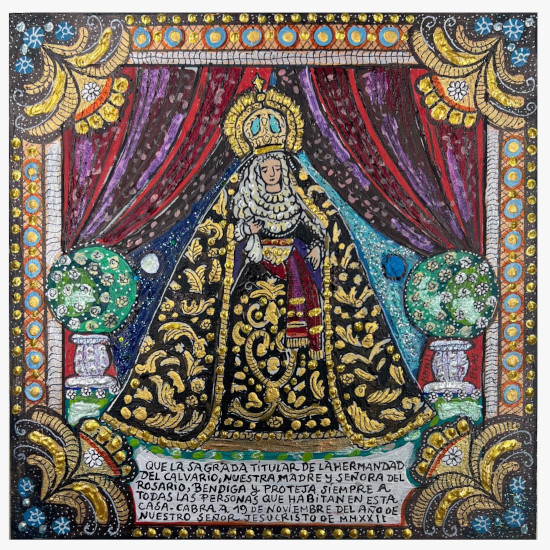 QUE LA SAGRADA TITULAR DE LA HERMANDAD
DEL CALVARIO, NUESTRA MADRE Y SEÑORA DEL
ROSARIO, BENDIGA Y PROTEJA SIEMPRE A
TODAS LAS PERSONAS QUE HABITAN EN ESTA
CASA. CABRA A 19 DE NOVIEMBRE DEL AÑO DE
NUESTRO SEÑOR JESUCRISTO DE MMXXII